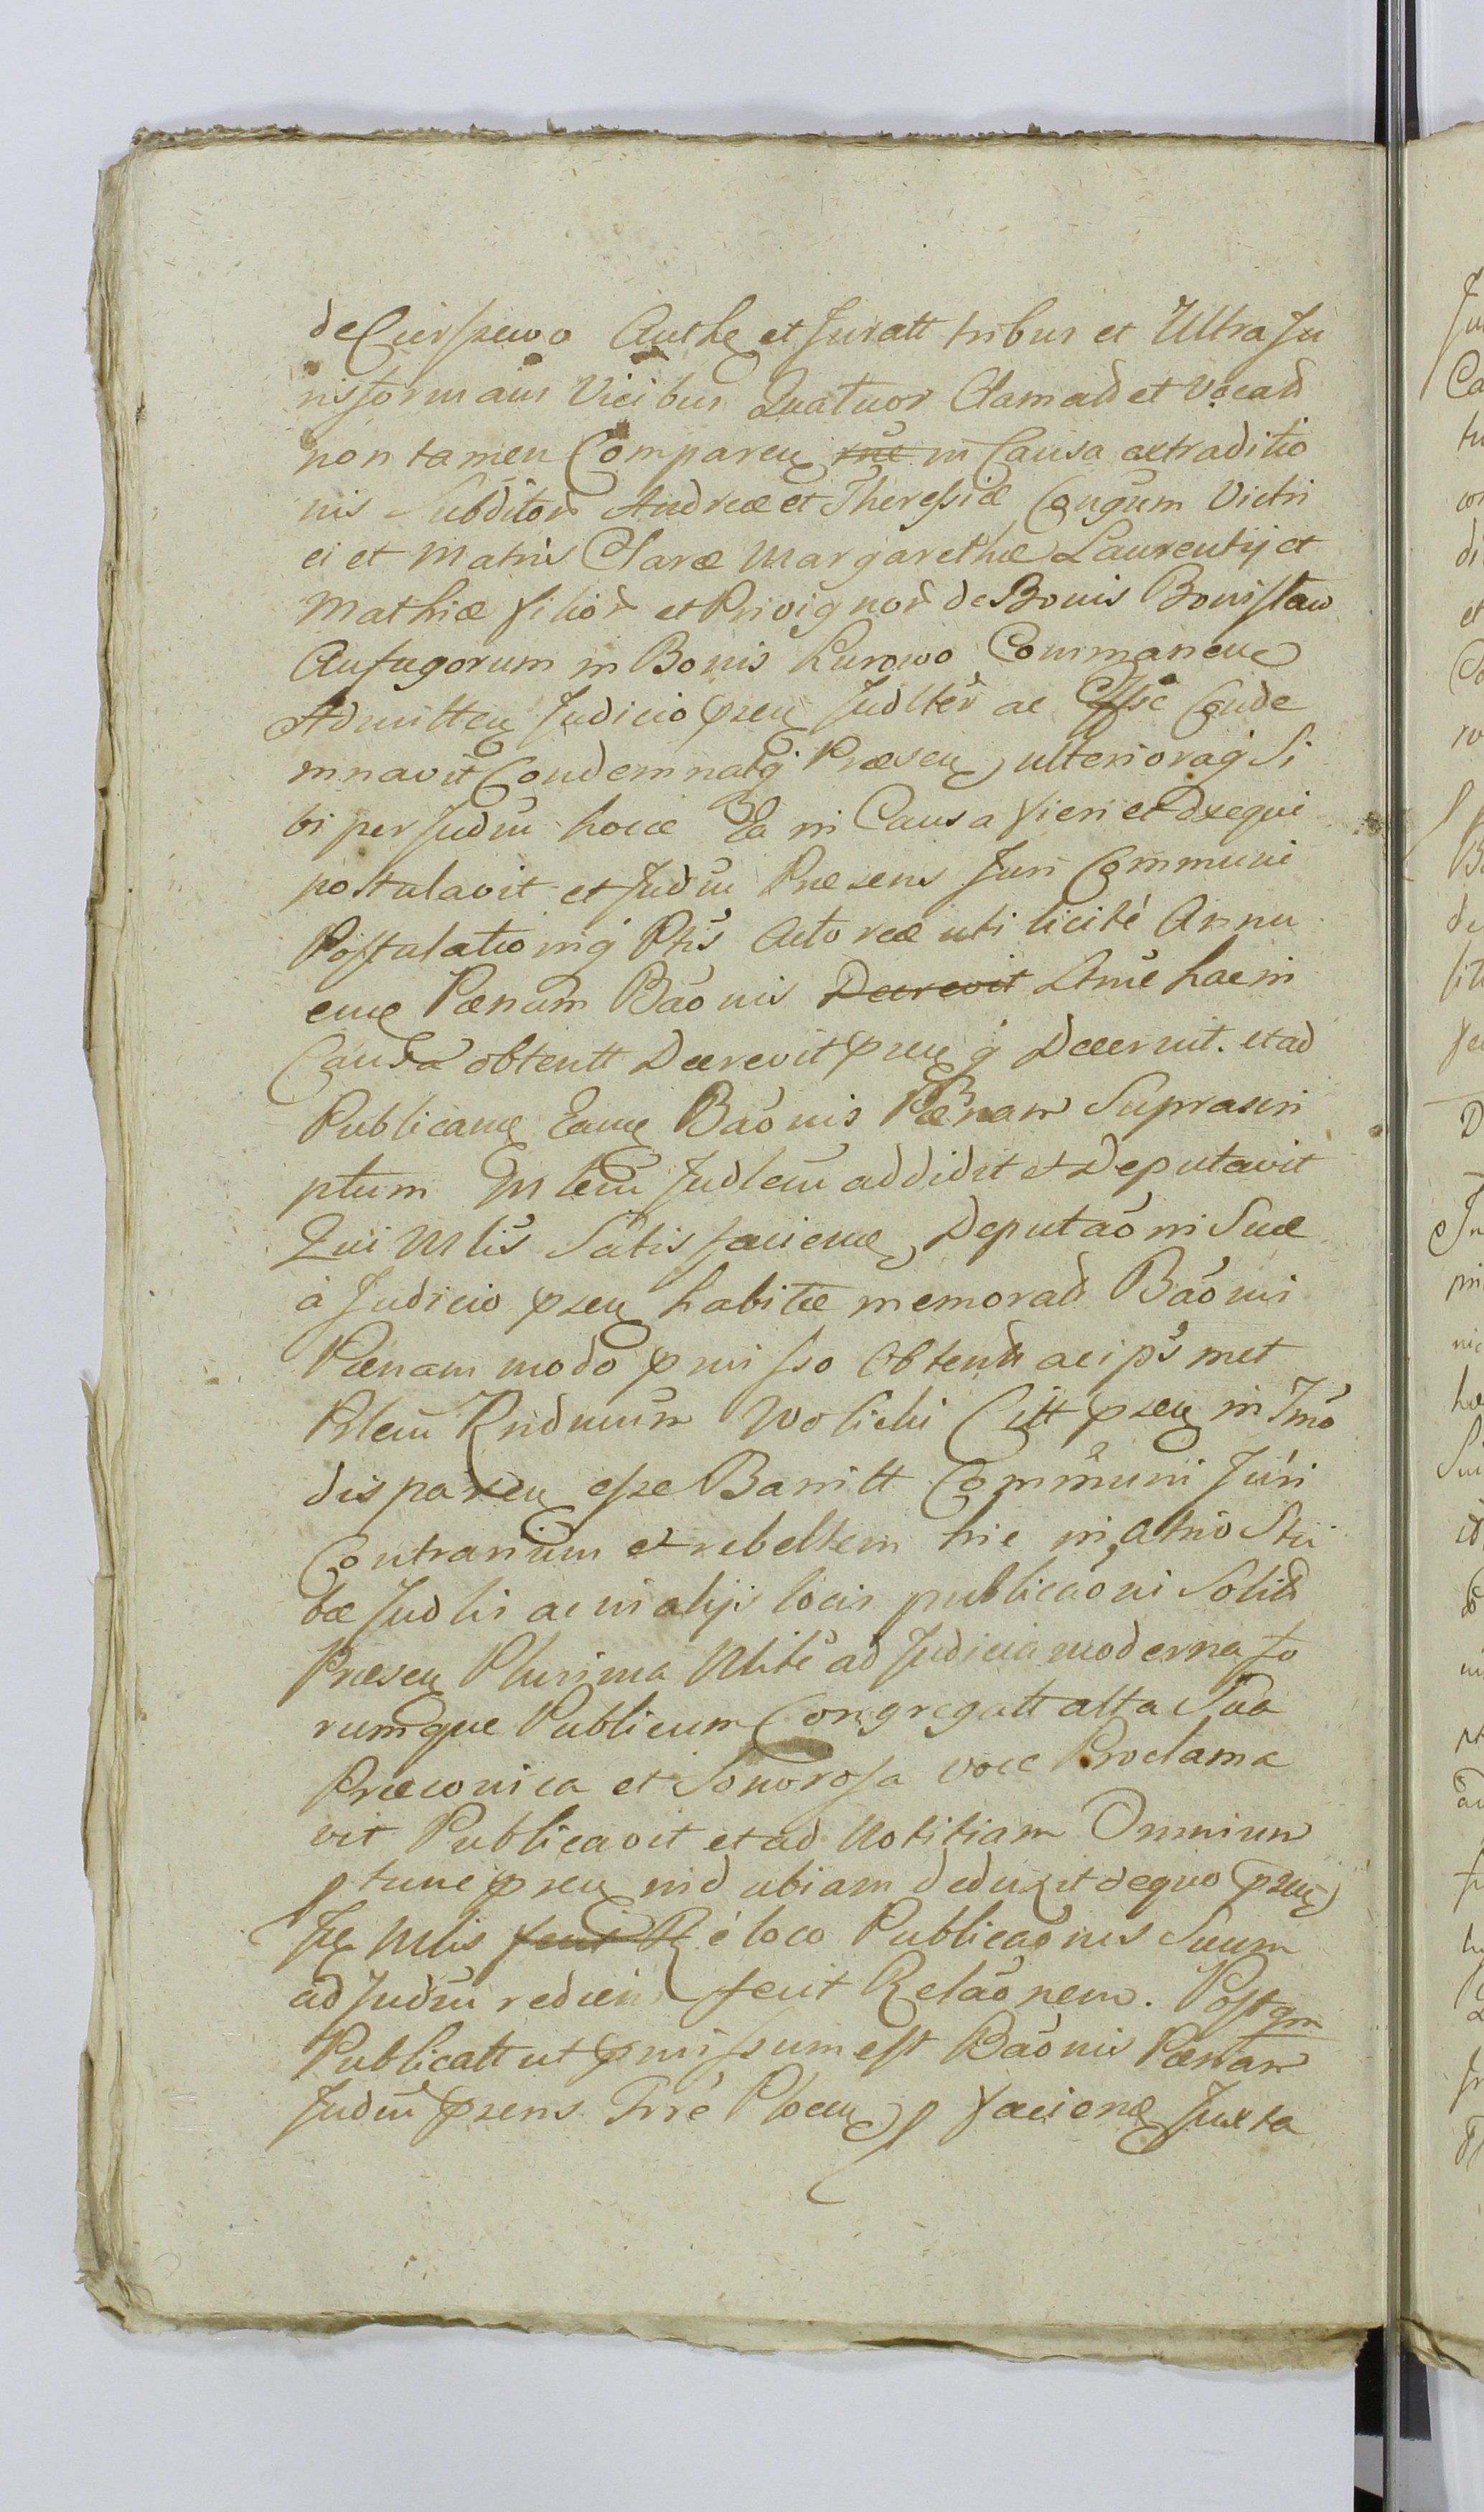 de Cierszewo Authe et Juratt tribus et Ultra Ju
ris formam Vicibus Quatuor Clamad et Vocad
non tamen Comparen in Causa extraditio
nis Subditor Andreæ et Theressiæ Congum Vitri
ci et Matris Claræ Margarethæ Laurentij et
Mathiæ filior et Privignor de Bonis Bonisław
Aufugorum in Bonis Kurowo Commanen
Admitten Judicio pzen Judlter ac Conde
mnavit Condemnatq Præsen ulterioraq Si
bi per Judm hocce Ea in Causa fieri et Exequi
postulavit et Judm Præsens Juri Communi
Postulationiq Ptis Actoreæ uti licité Annu
en Pœnam Bãonis Decrevit hac in
Causa obtentt Decrevit pzen q Decernit. et ad
Publicam Eam Bãonis Pœnam Suprascri
ptum Mlem Judlem addidit et Deputavit
Qui Mlis Satisfacien Deputãoni Suæ
à Judicio pzen habitæ memorad Bãonis
Pœnam modo pmisso Obtentt ac ipsmet
Rndmum Wolicki Citt pzen in Tmo
disparen esse Bannitt Communi Juri
Contrarium et rebellem hic in Atrio Stu
bæ Judlis ac in alijs locis publicãoni Solitt
Præsen Plurima Nlite ad Judicia moderna fo
rumque Publicum Congregatt alta Sua
Præconica et Sonorosa voce Proclama
vit Publicavit et ad Notitiam Omnium
ptunc pzen indubiam deduxit de quo pzen
Mlis fecit R é loco Publicãonis Suum
ad Judm redien fecit Relãonem. Postqm
Publicatt ut pmissum est Bãonis Pœnam
Judm pzens Trré Plocen facien Juxta